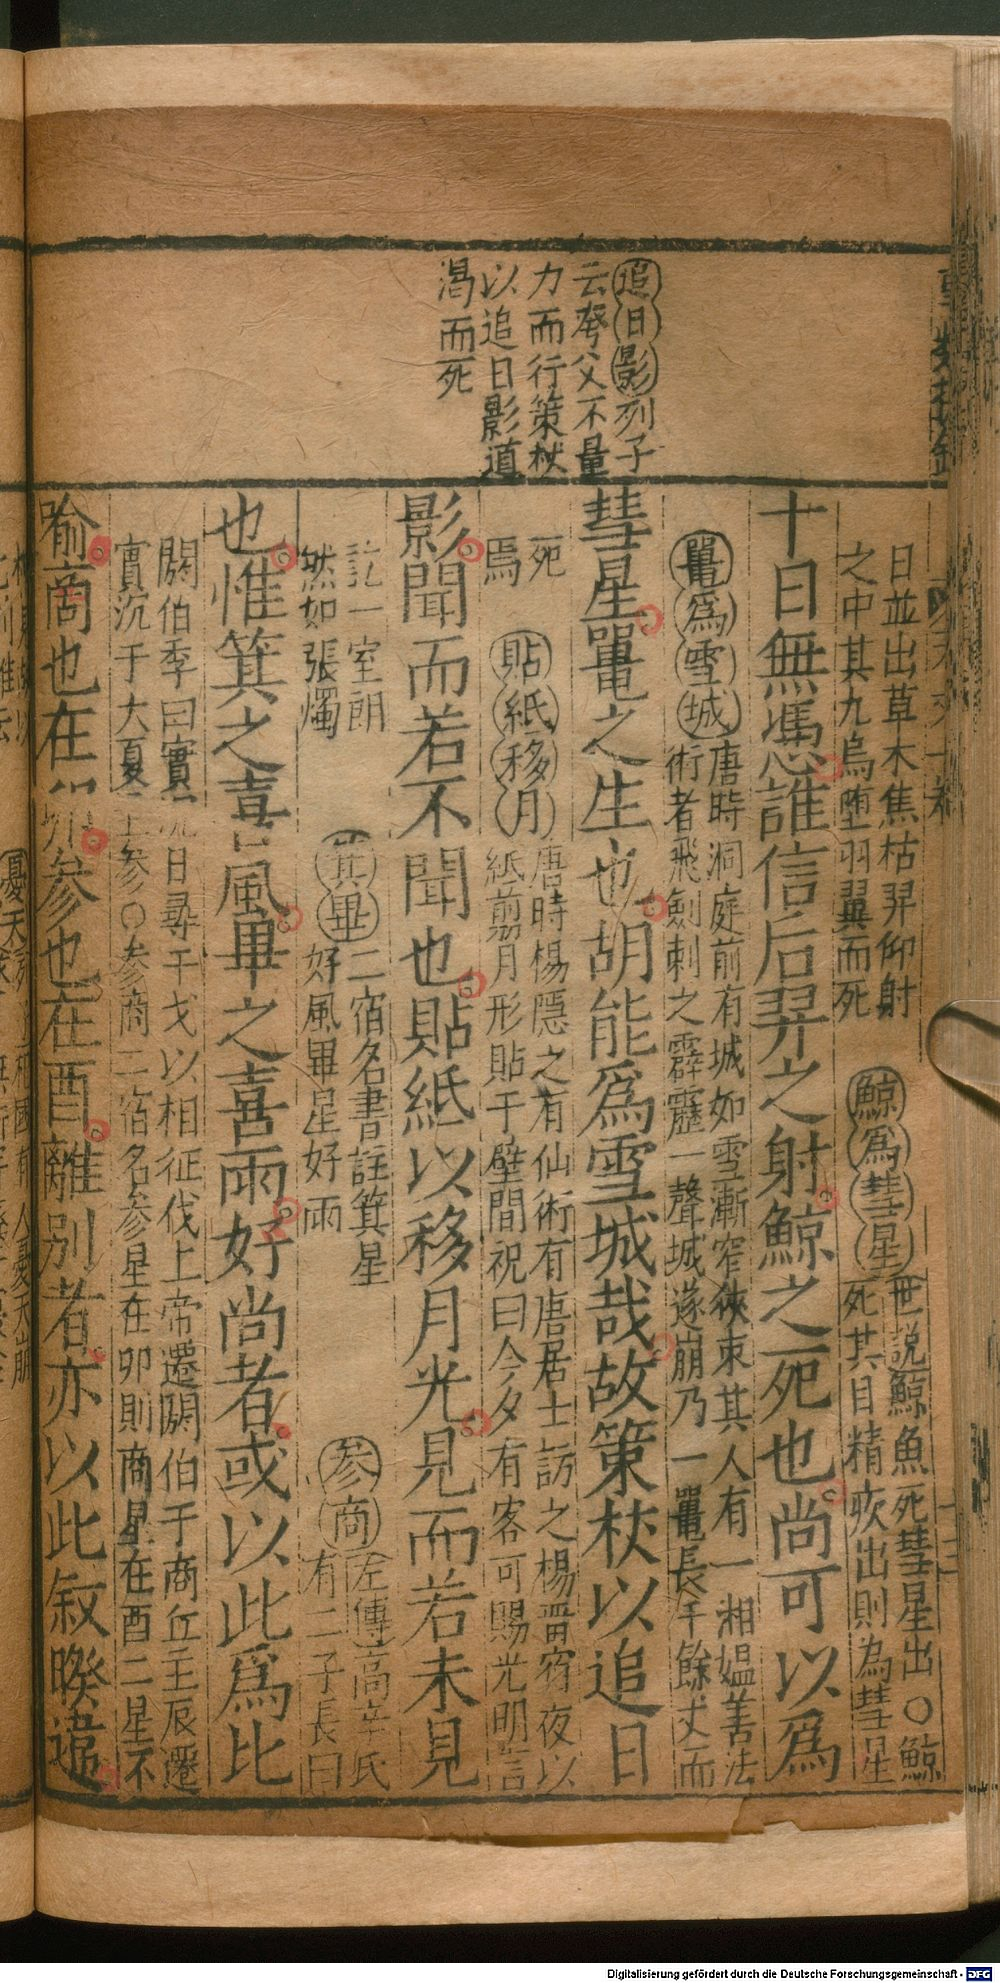 追日影列子
云夸父不量
力而行策杖
以追日影道
渴而死
日並出草木焦枯羿仰射
之中其九烏墮羽翼而死
鯨爲彗星
世説鯨魚死彗星出○鯨
死其目精疾出則為彗星
十日無馮慿誰信后羿之射鯨之死也尚可以爲
鼉爲雪城
唐時洞庭前有城如雪漸窄狹束其人有一湘媪善法
術者飛劍刺之霹靂一聲城遂崩乃一鼉長千餘丈而
彗星鼉之生也胡能爲雪城哉故策杖以追日
死
焉
貼紙移月
唐時楊隱之有仙術有唐居士訪之楊晋宿夜以
紙剪月形貼于壁間祝曰今夕有客可賜光明言
影聞而若不聞也貼紙以移月光見而若未見
訖一室朗
然如張燭
箕畢
二宿名書註箕星
好風畢星好雨
參商
左傳高辛氏
有二子長曰
也惟箕之喜風畢之喜雨好尚者或以此爲比
閼伯季曰實沉日尋干戈以相征伐上帝遷閼伯于商丘主辰遷
實沉于大夏主參○參商二宿名參星在卯則商星在酉二星不
喻商也在卯參也在酉離別者亦以此叙暌違
Digitalisierung gefördert durch die Deutsche Forschungsgemeinschaft - DFG